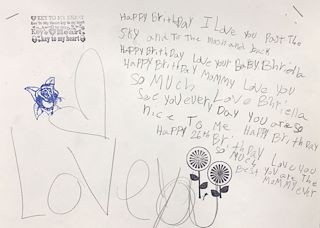 KEY TO MY HEART
Key to my heart
Key Heart
key to my heart
HaPPY BrithDay I Love you Past The
SKy and To The moon and back
HaPPY BrithDay Love your BaBy Briella
HaPPY BrithDay Mommy Love you
So Much Love Briella
See you every Day you are so
nice To Me HaPPy BrithDay
HaPPy 26th BrithDay Love you
so Much you are The
Best MoMMy ever
Love you